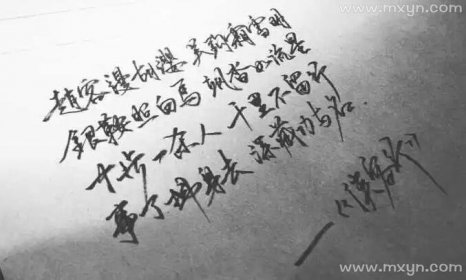 www.mxyn.com
趙客漫胡纓 吴鈎霜雪明
銀鞍照白馬 颯沓如流星
十步一杀人 千里不留行
事了拂身去 深藏功与名
—《侠客行》
www.mxyn.com